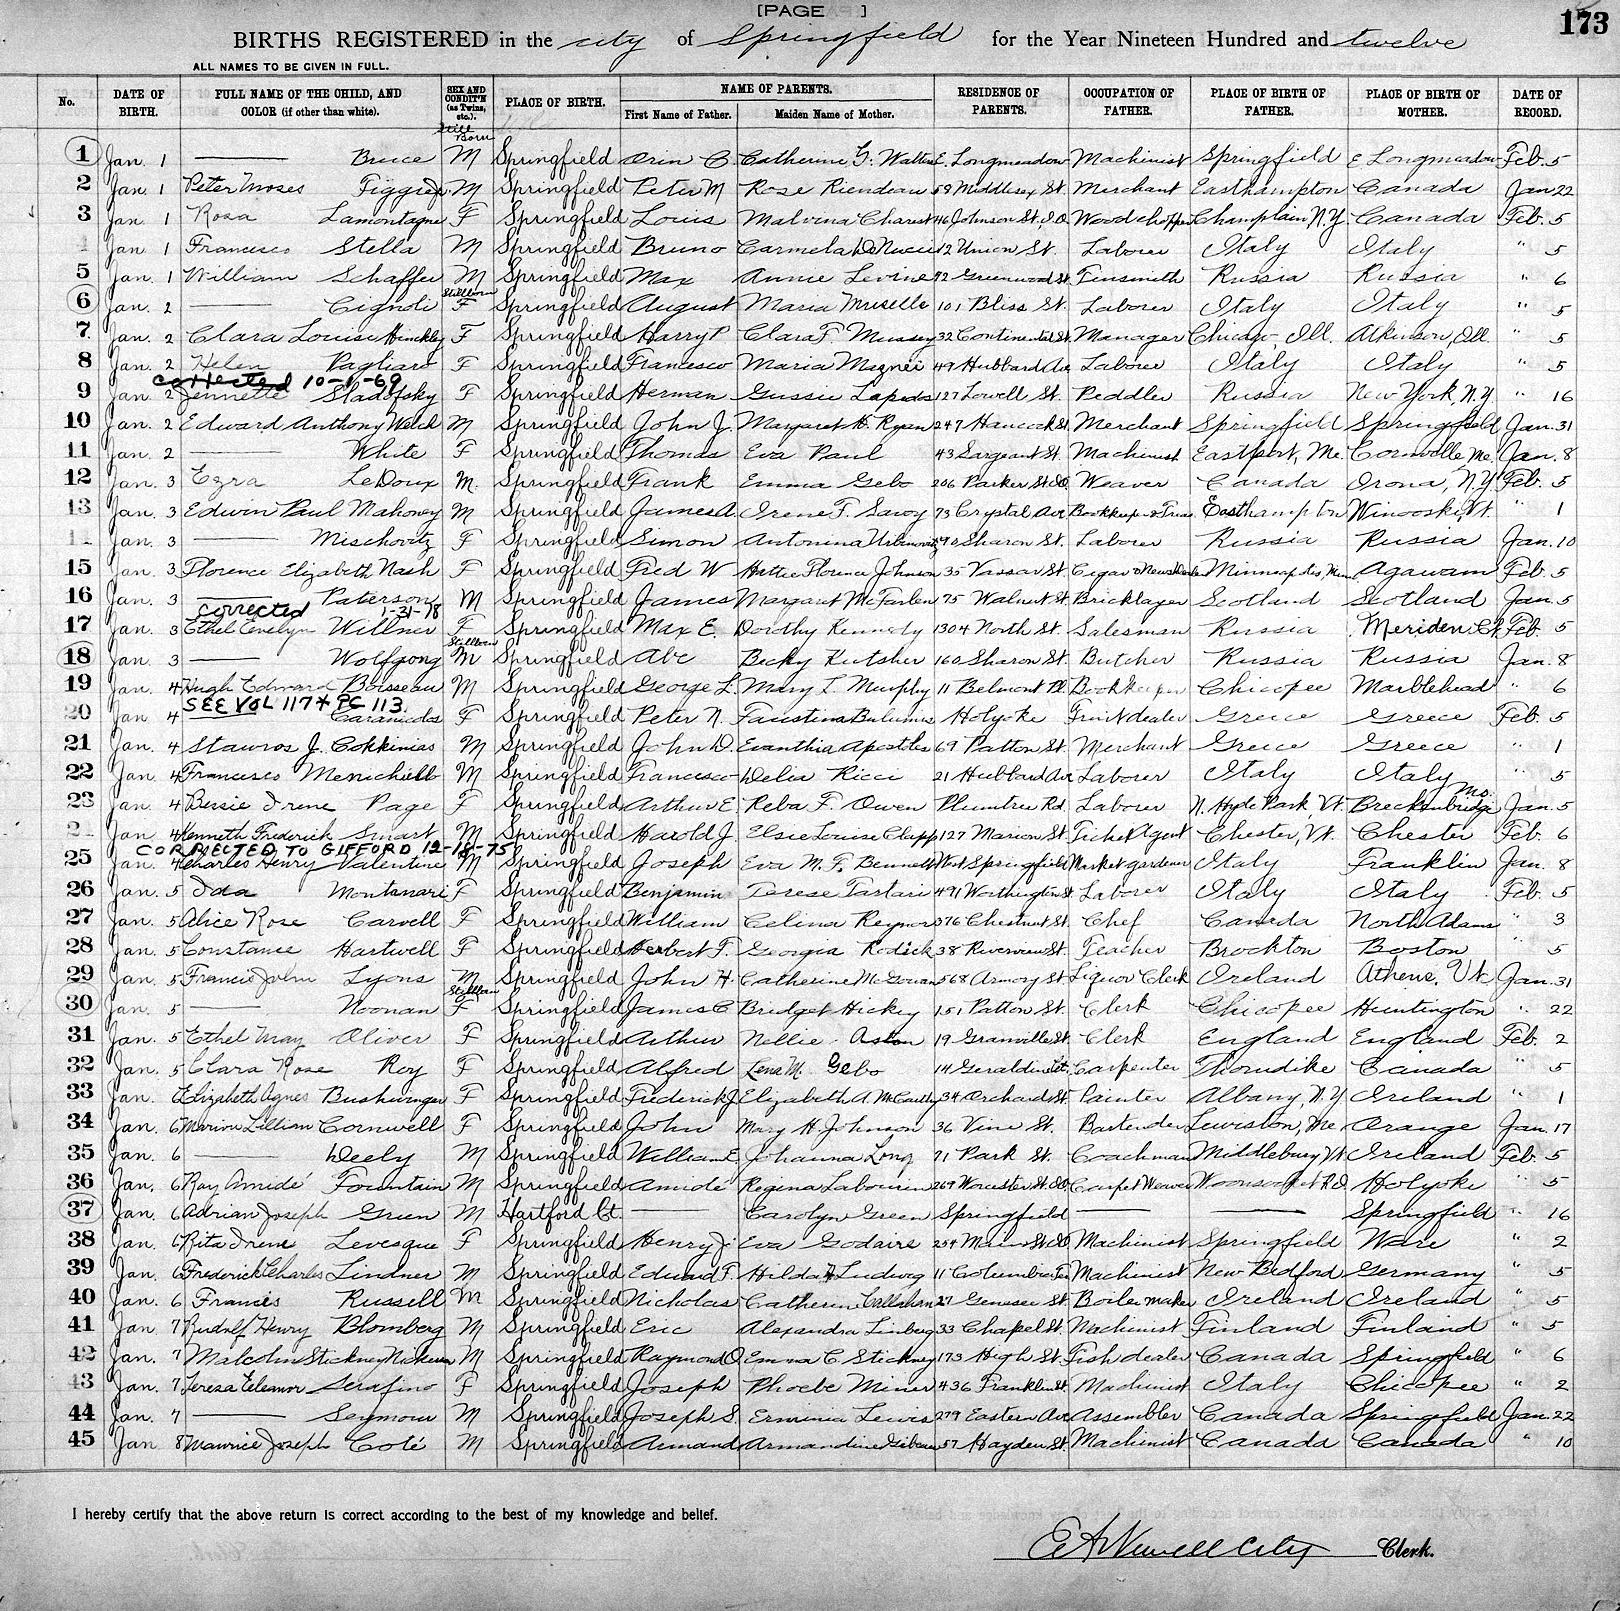 [PAGE ]
173
BIRTHS REGISTERED in the city of Springfield for the Year Nineteen Hundred and twelve
ALL NAMES TO BE GIVEN IN FULL.
No. DATE OF BIRTH. FULL NAME OF THE CHILD, AND COLOR (if other than white). SEX AND CONDIT'N (as Twins, etc.). PLACE OF BIRTH. NAME OF PARENTS. First Name of Father. Maiden Name of Mother. RESIDENCE OF PARENTS. OCCUPATION OF FATHER. PLACE OF BIRTH OF FATHER. PLACE OF BIRTH OF MOTHER. DATE OF RECORD.
Still Born
1 Jan. 1 —— Bruce M Springfield Orin C. Catherine G. Walters E. Longmeadow Machinist Springfield E Longmeadow Feb. 5
2 Jan. 1 Peter Moses M Springfield Peter M Rose Riendeau 59 Middlesex St. Merchant Easthampton Canada Jan 22
3 Jan. 1 Rosa Lamontagne F Springfield Louis Malvina Charest 46 Johnson St, I.O. Woodchopper Champlain N.Y. Canada Feb. 5
Jan. 1 Francesco Stella M Springfield Bruno Carmela 12 Union St. Laborer Italy Italy " 5
5 Jan. 1 William Schaffer M Springfield Max Annie Levine 92 Greenwood St. Tinsmith Russia Russia " 6
Stillborn
6 Jan. 2 —— Cignoli F Springfield August Maria Muselle 101 Bliss St. Laborer Italy Italy " 5
7 Jan. 2 Clara Louise Hinckley F Springfield Harry P Clara F Mussey 32 Continental St. Manager Chicago Ill. Atkinson, Ill. 5
8 Jan. 2 Helen Pagliaro F Springfield Francesco Maria Magnei 49 Hubbard Av. Laborer Italy Italy " 5
corrected 10-1-69
9 Jan. 2 Jennette Sladofsky F Springfield Herman Gussie Lapeds 127 Lowell St. Peddler Russia New York, N.Y " 16
10 Jan. 2 Edward Anthony Welch M Springfield John J. Margaret H. Ryan 247 Hancock St. Merchant Springfield Springfield Jan. 31
11 Jan. 2 —— White F Springfield Thomas Eva Paul 43 Sargeant St. Machinist Eastport, Me. Cornville, Me. Jan. 8
12 Jan. 3 Ezra LeDoux M. Springfield Frank Emma Gebo 206 Parker St. I.O. Weaver Canada Orona, N.Y Feb. 5
13 Jan. 3 Edwin Paul Mahoney M Springfield James A. Irene F. Savoy 73 Crystal Ave Bookkeeper & Treas. Easthampton Winooski, Vt. " 1
Jan. 3 —— Mischovitz F Springfield Simon Antonina Urbanovitz 90 Sharon St. Laborer Russia Russia Jan. 10
15 Jan. 3 Florence Elizabeth Nash F Springfield Fred W Hattie Florence Johnson 35 Vassar St Cigar & News Dealer Minneapolis, Minn Agawam Feb. 5
16 Jan. 3 —— Paterson M Springfield James Margaret McFarlen 75 Walnut St. Bricklayer Scotland Scotland Jan. 5
corrected 1-31-78
17 Jan. 3 Ethel Evelyn Willner F Springfield Max E. Dorothy Kennedy 1304 North St. Salesman Russia Meriden, Ct. Feb. 5
Stillborn
18 Jan. 3 —— Wolfgong M Springfield Abe Becky Kutsher 160 Sharon St. Butcher Russia Russia Jan. 8
19 Jan. 4 Hugh Edward Boisseau M Springfield George L. Mary L Murphy 11 Belmont Pl. Bookkeeper Chicopee Marblehead " 6
SEE VOL 117 + PG 113.
20 Jan. 4 —— Caranicolas F Springfield Peter N. Faustina Holyoke Fruit dealer Greece Greece Feb. 5
21 Jan. 4 Stavros J. Cokkinias M Springfield John D. Evanthia Apostles 69 Patton St. Merchant Greece Greece " 1
22 Jan. 4 Francesco Menichiello M Springfield Francesco Delia Ricci 21 Hubbard Av. Laborer Italy Italy " 5
23 Jan. 4 Bessie Irene Page F Springfield Arthur E Reba F. Owen Plumtree Rd Laborer N. Hyde Park, Vt. Breckenbridge Mo. Jan. 5
Jan. 4 Kenneth Frederick Smart M Springfield Harold J. Elsie Louise Clapp 127 Marion St. Ticket Agent Chester, Vt. Chester Feb. 6
CORRECTED TO GIFFORD 12-18-75
25 Jan. 4 Charles Henry Valentine M Springfield Joseph Eva M. F. Bennett West Springfield Market gardener Italy Franklin Jan. 8
26 Jan. 5 Ida Montanari F Springfield Benjamin Terese Tartari 491 Worthington St. Laborer Italy Italy Feb. 5
27 Jan. 5 Alice Rose Carvell F Springfield William Celina Reynor 376 Chestnut St. Chef Canada North Adams " 3
28 Jan. 5 Constance Hartwell F Springfield Herbert F. Georgia Rodick 38 Riverview St. Teacher Brockton Boston " 5
29 Jan. 5 Francis John Lyons M Springfield John H. Catherine McGowan 568 Armory St Liquor Clerk Ireland Athens, Vt Jan. 31
Stillborn
30 Jan. 5 —— Noonan F Springfield James C Bridget Hickey 151 Patton St. Clerk Chicopee Huntington " 22
31 Jan. 5 Ethel May Oliver F Springfield Arthur Nellie Aston 19 Granville St. Clerk England England Feb. 2
32 Jan. 5 Clara Rose Roy F Springfield Alfred Lena M. Gebo 14 Geraldine Carpenter Thorndike Canada " 5
33 Jan. Elizabeth Agnes Bushwinger F Springfield Frederick J. Elizabeth A. McCarthy 34 Orchard St. Painter Albany, N.Y Ireland " 1
34 Jan. 6 Marion Lillian Cornwell F Springfield John Mary H. Johnson 36 Vine St. Bartender Lewiston, Me. Orange Jan. 17
35 Jan. 6 —— Deely M Springfield William E. Johanna Long 71 Park St. Coachman Middlebury Vt Ireland Feb. 5
36 Jan. 6 Ray Amidé Fountain M Springfield Amidé Regina Labouirin 269 Worcester St. I.O. Carpet Weaver Woonsocket R.I Holyoke " 5
37 Jan. 6 Adrian Joseph Green M Hartford Ct. —— Carolyn Green Springfield —— —— Springfield " 16
38 Jan. 6 Rita Irene Levesque F Springfield Henry J. Eva Godaire 254 Main St. I.O. Machinist Springfield Ware " 2
39 Jan. 6 Frederick Charles Lindner M Springfield Edward F. Hilda Ludwig 11 Columbia Ter. Machinist New Bedford Germany " 5
40 Jan. 6 Francis Russell M Springfield Nicholas Catherine Callahan 27 Genesee St. Boiler maker Ireland Ireland " 5
41 Jan. 7 Rudolf Henry Blomberg M Springfield Eric Alexandra Linberg 33 Chapel St. Machinist Finland Finland " 5
42 Jan. 7 Malcolm Stickney Nickerson M Springfield Raymond O. Emma C. Stickney 173 High St. Fish dealer Canada Springfield " 6
43 Jan. 7 Teresa Eleanor Serafino F Springfield Joseph Phoebe Miner 436 Franklin St. Machinist Italy Chicopee " 2
44 Jan. 7 —— Seymour M Springfield Joseph S. Ermina Lewis 279 Eastern Ave Assembler Canada Springfield Jan. 22
45 Jan. 8 Maurice Joseph Coté M Springfield Armand Armandine 57 Hayden St. Machinist Canada Canada " 10
I hereby certify that the above return is correct according to the best of my knowledge and belief.
E A Newell City Clerk.